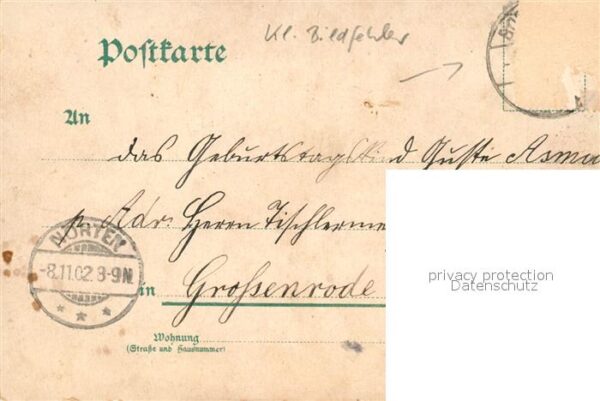 Kl. Bildfehler
Postkarte
An
das Geburtstagskind Guste Asmu
p. Adr. Herrn Tischlerme
NÖRTEN
-8.11.02.8-9N.
in Großenrode
Wohnung
(Straße und Hausnummer)
privacy protection
Datenschutz